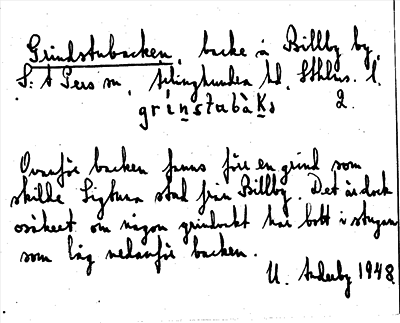 Grindstubacken, backe å Billby by,
S:t Pers sn, Ärlinghundra hd, Sthlms. l.
grìnstubàkḁ 2.
Ovanför backen fanns förr en grind som
skilde Sigtuna stad från Billby. Det är dock
osäkert om någon grindvakt har bott i stugan
som låg nedanför backen.
U. Arderby 1948